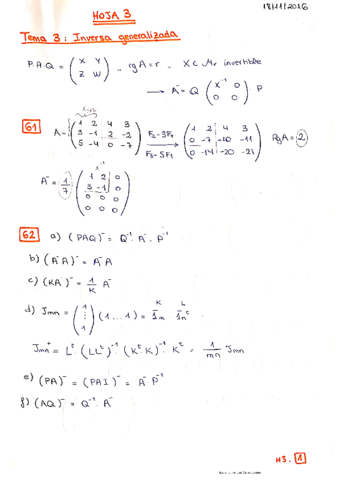 18/11/2016
HOJA 3
Tema 3: Inversa generalizada
P.A.Q = ( X Y ; Z W ) .. rg A = r . X ∈ Mr invertible
→ A⁻ = Q ( X⁻¹ 0 ; 0 0 ) P
61 A = ( 1 2 4 3 ; 3 -1 2 -2 ; 5 -4 0 -7 ) F2-3F1 → F3-5F1 ( 1 2 4 3 ; 0 -7 -10 -11 ; 0 -14 -20 -21 ) Rg A = 2
A⁻ = 1/7 ( 1 2 0 ; 3 -1 0 ; 0 0 0 ; 0 0 0 )
62 a) (PAQ)⁻ = Q⁻¹ . A⁻ . P⁻¹
b) (A⁻A)⁻ = A⁻A
c) (KA)⁻ = 1/K A⁻
d) Jmn = ( 1 ⋮ 1 ) (1 ... 1) = 1m . 1nᵗ
K L
Jmn⁺ = Lᵗ (LLᵗ)⁻¹ (Kᵗ K)⁻¹ Kᵗ = 1/mn Jmn
e) (PA)⁻ = (PAI)⁻ = A⁻ P⁻¹
f) (AQ)⁻ = Q⁻¹ A⁻
H3. 1